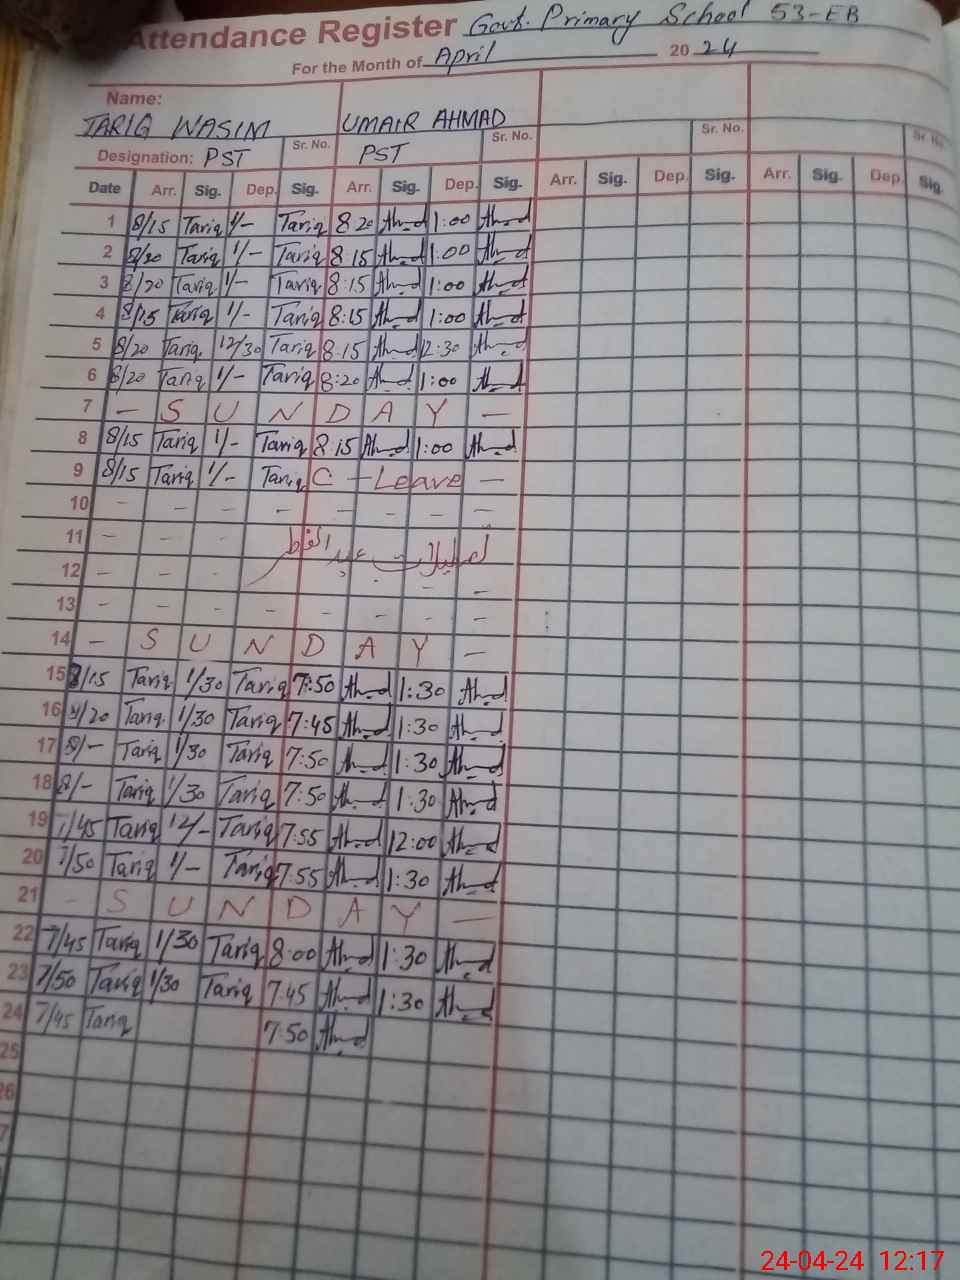 Attendance Register Govt. Primary School 53-EB
For the Month of April 20 24
Name:
TARIQ WASIM UMAIR AHMAD
Sr. No. Sr. No. Sr. No. Sr. No.
Designation: PST PST
Date Arr. Sig. Dep. Sig. Arr. Sig. Dep. Sig. Arr. Sig. Dep. Sig. Arr. Sig. Dep. Sig.
1 8/15 Tariq 1/- Tariq 8:20 Ahmd 1:00 Ahmd
2 8/20 Tariq 1/- Tariq 8:15 Ahmd 1:00 Ahmd
3 8/20 Tariq 1/- Tariq 8:15 Ahmd 1:00 Ahmd
4 8/15 Tariq 1/- Tariq 8:15 Ahmd 1:00 Ahmd
5 8/20 Tariq 12/30 Tariq 8:15 Ahmd 12:30 Ahmd
6 8/20 Tariq 1/- Tariq 8:20 Ahmd 1:00 Ahmd
7 - S U N D A Y -
8 8/15 Tariq 1/- Tariq 8:15 Ahmd 1:00 Ahmd
9 8/15 Tariq 1/- Tariq C - Leave -
10 - - - - - - - -
11 - - - تعطیلات عید الفطر
12 - - - - -
13 - - - - - - - -
14 - S U N D A Y -
15 8/15 Tariq 1/30 Tariq 7:50 Ahmd 1:30 Ahmd
16 8/20 Tariq 1/30 Tariq 7:45 Ahmd 1:30 Ahmd
17 8/- Tariq 1/30 Tariq 7:50 Ahmd 1:30 Ahmd
18 8/- Tariq 1/30 Tariq 7:50 Ahmd 1:30 Ahmd
19 7/45 Tariq 12/- Tariq 7:55 Ahmd 12:00 Ahmd
20 7/50 Tariq 1/- Tariq 7:55 Ahmd 1:30 Ahmd
21 - S U N D A Y -
22 7/45 Tariq 1/30 Tariq 8:00 Ahmd 1:30 Ahmd
23 7/50 Tariq 1/30 Tariq 7:45 Ahmd 1:30 Ahmd
24 7/45 Tariq 7:50 Ahmd
25
26
7
24-04-24 12:17